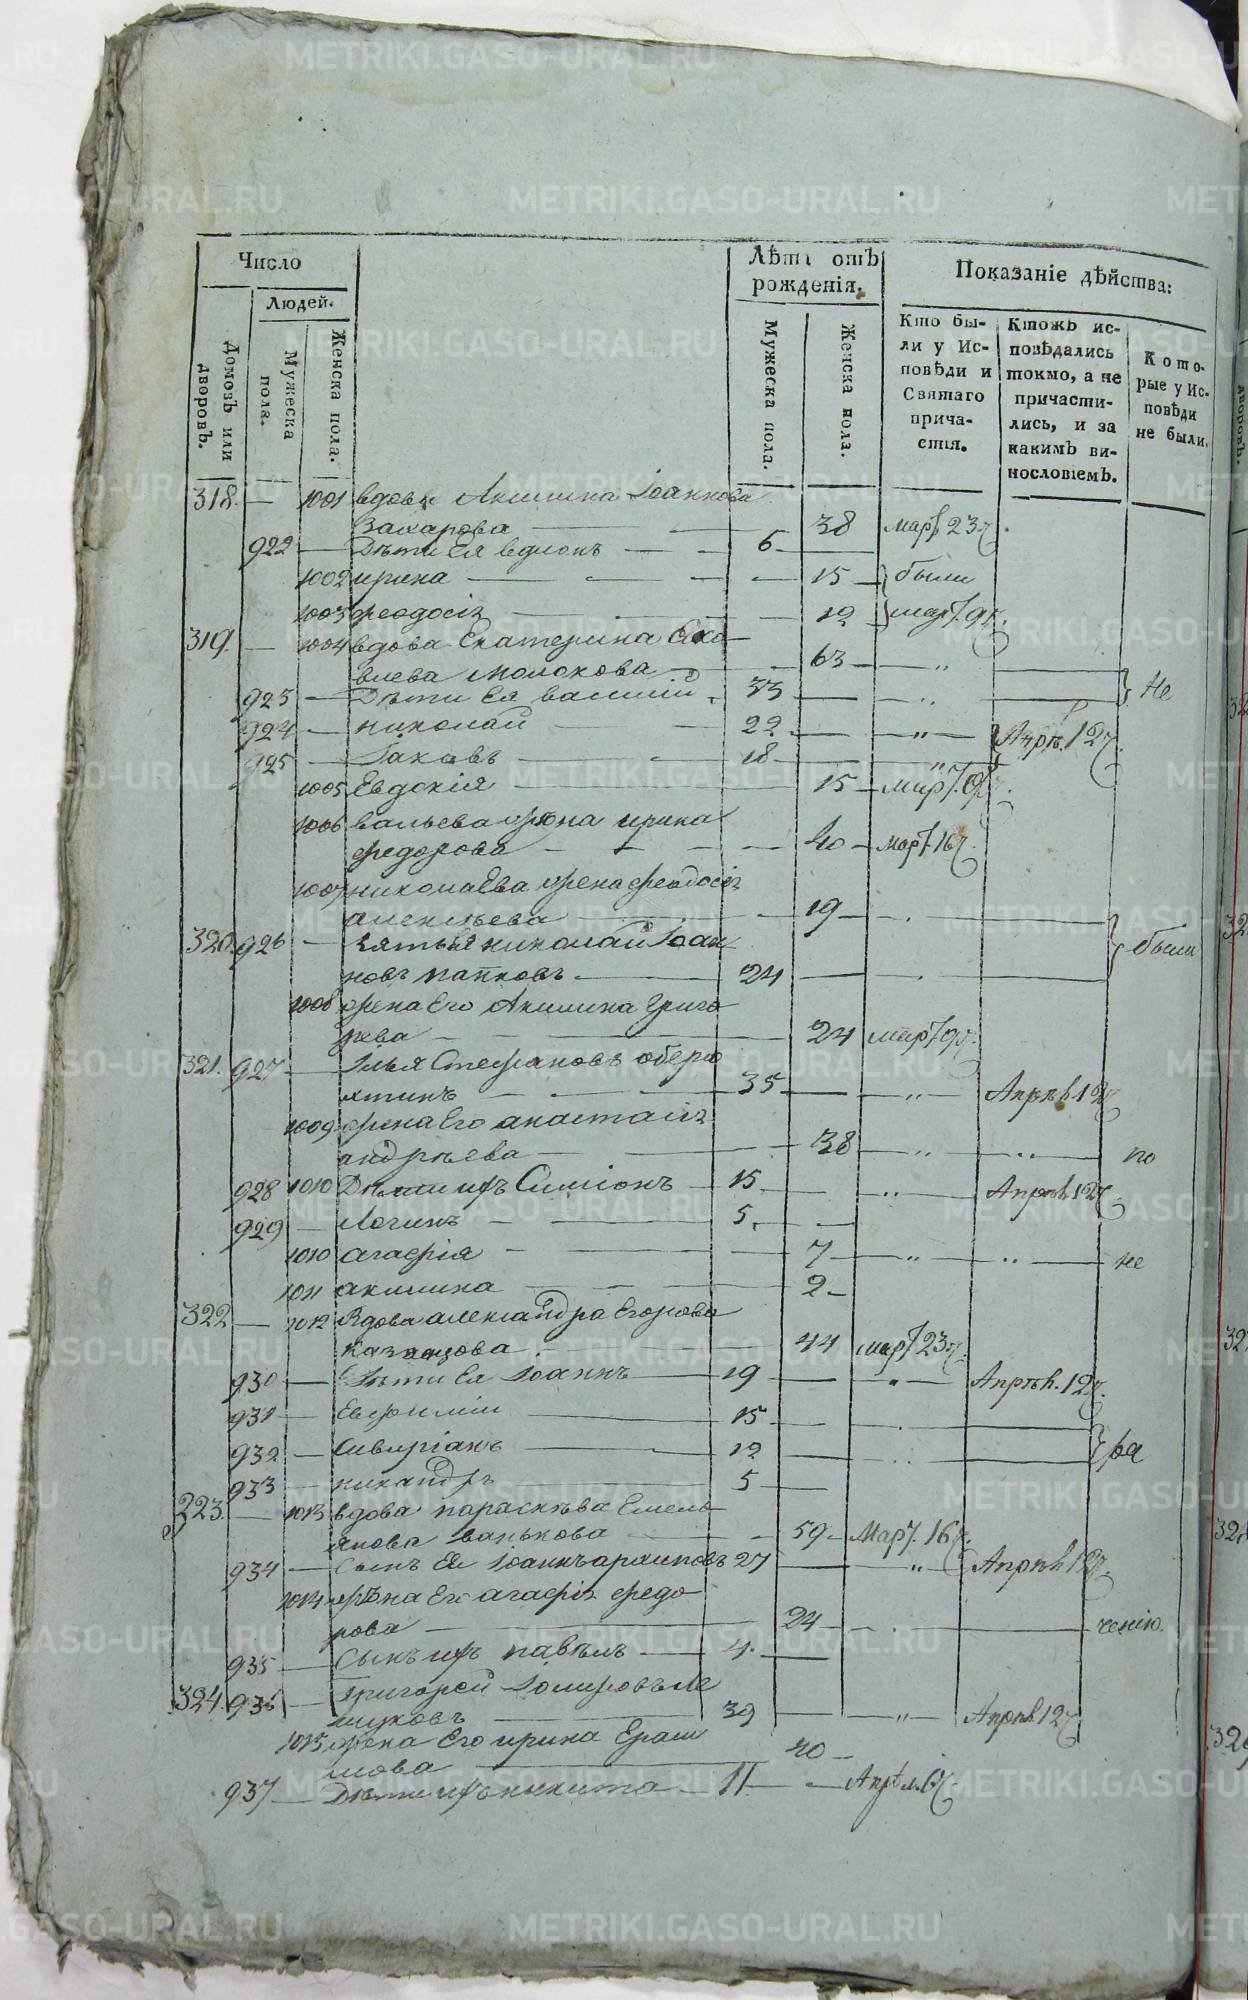 Число
Людей.
Домовъ или дворовъ.
Мужеска пола.
Женска пола.
Лѣтъ отъ рожденія.
Мужеска пола.
Женска пола.
Показаніе дѣйства:
Кто были у Исповѣди и Святаго причастія.
Ктожъ исповѣдались токмо, а не причастились, и за какимъ винословіемъ.
Которые у Исповѣди не были.
318. — 1001 вдова Акилина Іоаннова
Захарова — 38 март. 23 ч.
922 — Дѣти Ея — 6
1002 ирина — 15 были
1003 феодосія — 12 март. 9 ч.
319. — 1004 вдова Екатерина
Молокова — 63 — „
923 — Дѣти Ея василій 33 — „ — Не
924 — николай — 22 — „ — Апрѣ. 12 ч.
925 — Іаковъ — 18 — „
1005 Евдокія — 15 — март.
1006 жена ирина
федорова — 40 — март. 16 ч.
1007 николаева жена феодосія
алексѣева — 19 —
320. 926 — николай Іоан
новъ папковъ — 24 — были
1008 жена Его Акилина Григо
рева — 24 март. 9 ч.
321. 927 — Илья Стефановъ оберю
хтинъ — 35 — „ — Апрѣл 12 ч.
1009 жена Его анастасія
андрѣева — 38 — „ — „ — по
928 1010 Дѣти ихъ Симіонъ — 15 — „ — Апрѣл 12 ч.
929 — Логинъ — 5. —
1010 агафія — 7 — „ — „ — не
1011 акилина — 2 —
322 — 1012 Вдова александра Егорова
Казанцова — 44 март. 23 ч.
930 — Дѣти Ея Іоаннъ — 19 — „ — Апрѣл. 12 ч.
931 — Евфимій — 15 —
932 — — 12 — ра
933 — никандръ — 5 —
223. — 1013 вдова параскѣва Емель
янова ванькова — 59 — Март. 16 ч.
934 — Сынъ Ея Іоаннъ архиповъ 27 — „ — Апрѣл 12 ч.
1014 жена Его агафія федо
рова — 24 — . — ченію.
935 — Сынъ ихъ павелъ — 4. —
324. 936 — Григорей
— 39 — „ — Апрѣл 12 ч.
1015 жена Его ирина
— 40 —
937 — Дѣти ихъ никита — 11 — Апрѣл.
METRIKI.GASO-URAL.RU